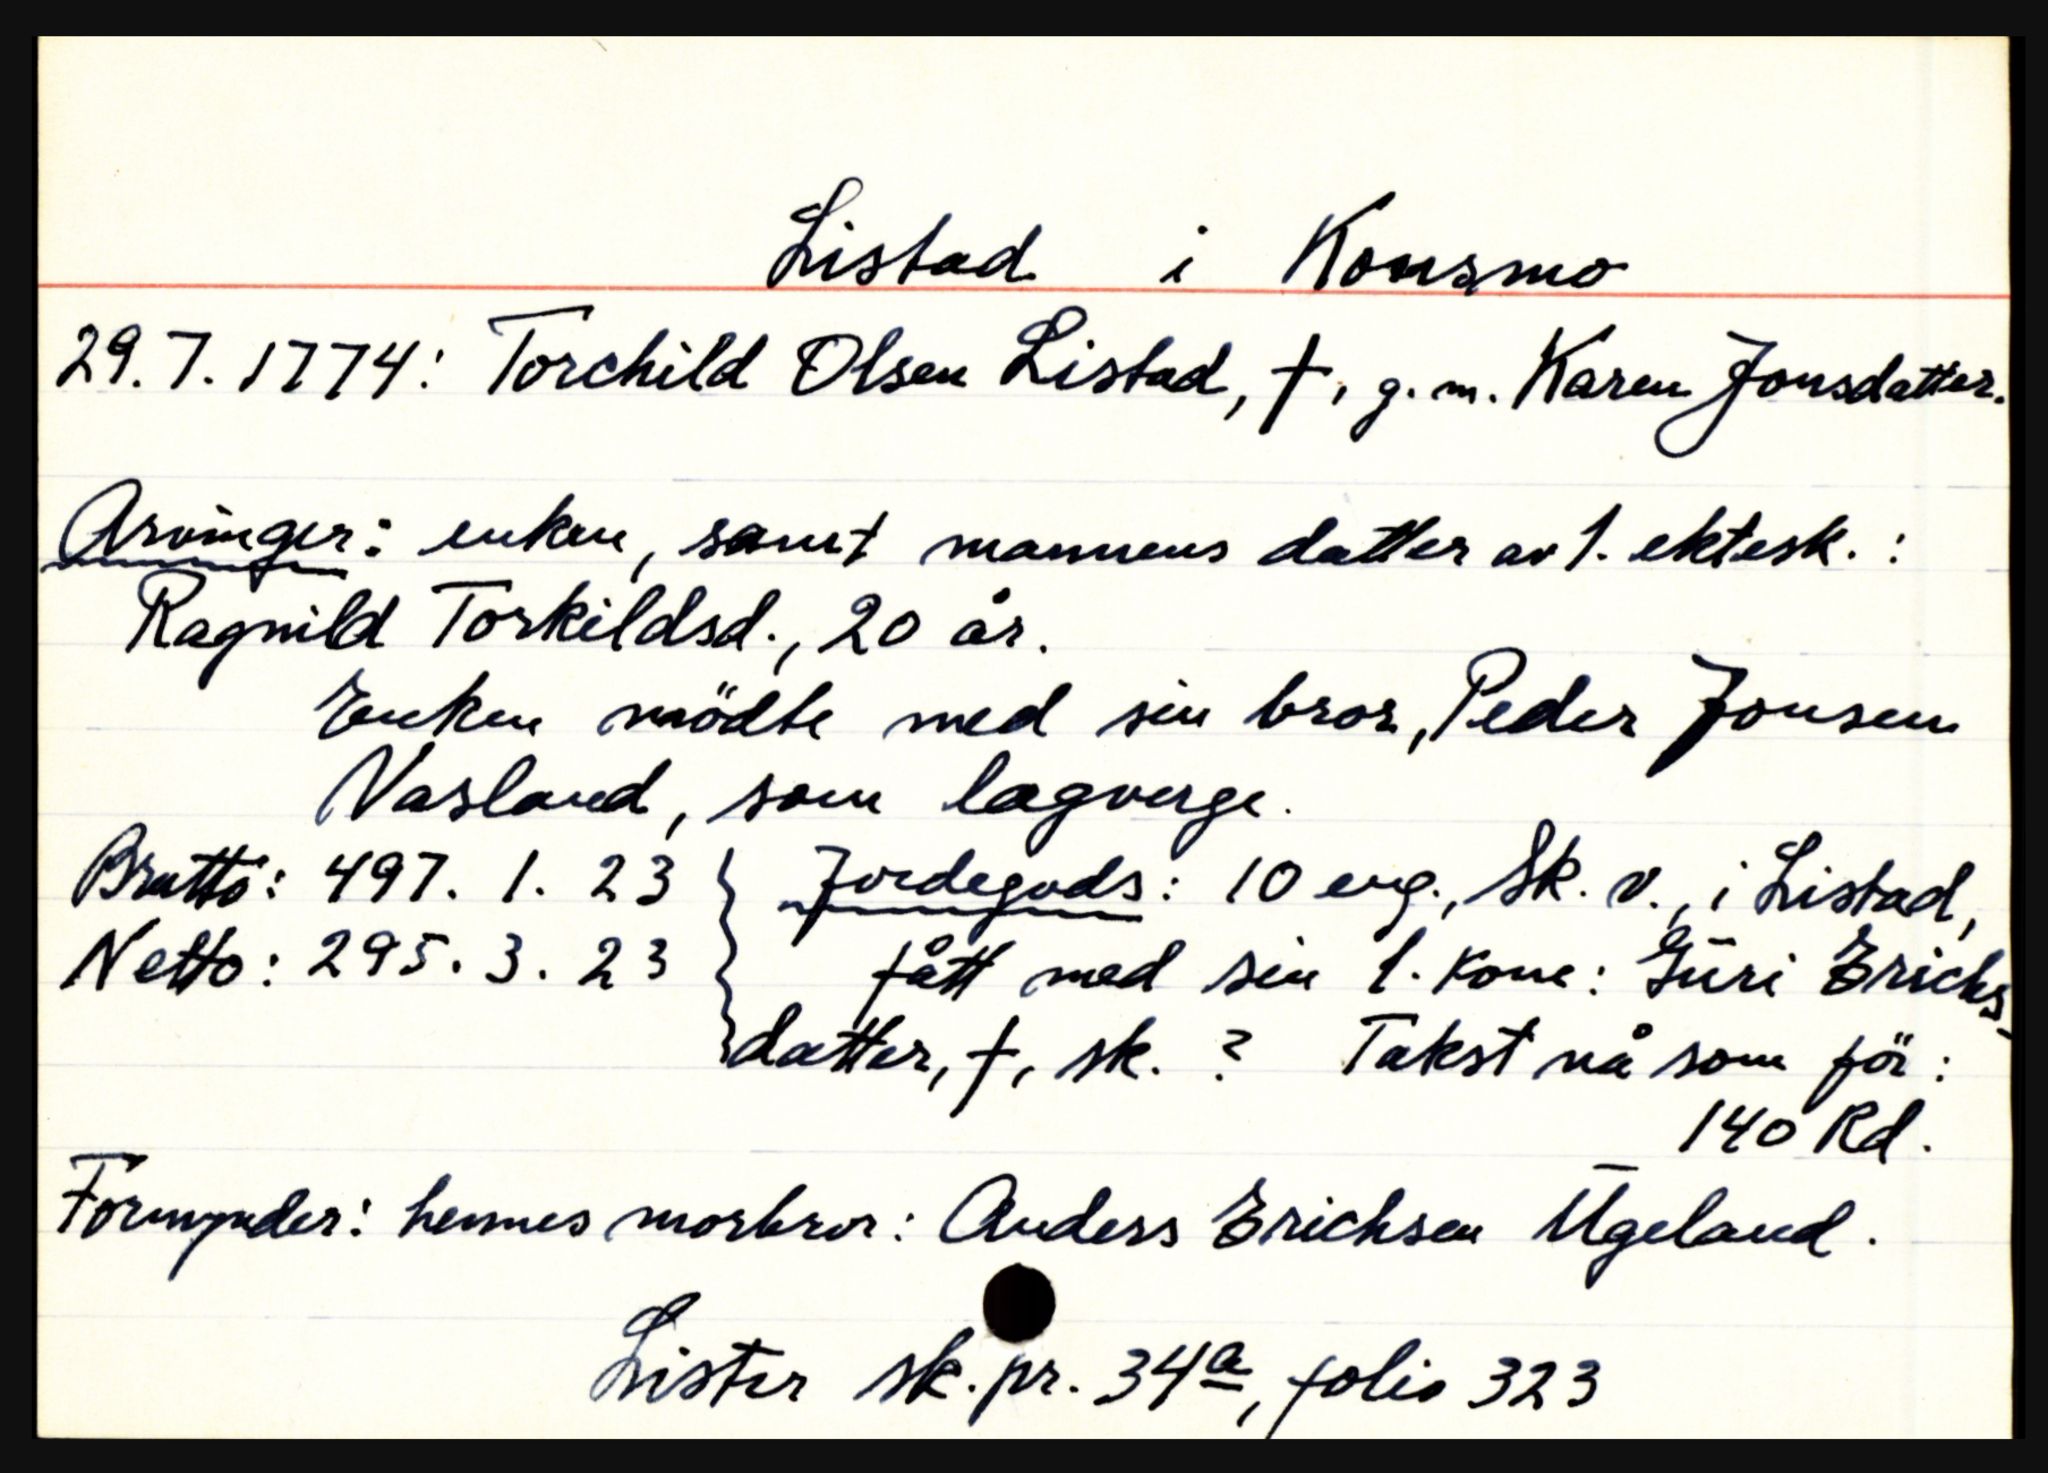 Listad i Konsmo
29.7.1774: Torchild Olsen Listad, †, g.m. Karen Jonsdatter.
Arvinger: enken, samt mannens datter av 1. ektesk.:
Ragnild Torkildsd., 20 år.
Enken mödte med sin bror, Peder Jonsen
Vasland, som lagverge.
Brutto: 497. 1. 23 } Jordegods: 10 eng., sk. v., i Listad,
Netto: 295. 3. 23 fått med sin 1. kone: Gūri Erichs-
datter, †, sk. ? Takst nå som för:
140 Rd.
Formynder: hennes morbror: Anders Erichsen Ūgeland.
Lister sk.pr. 34a, folio 323